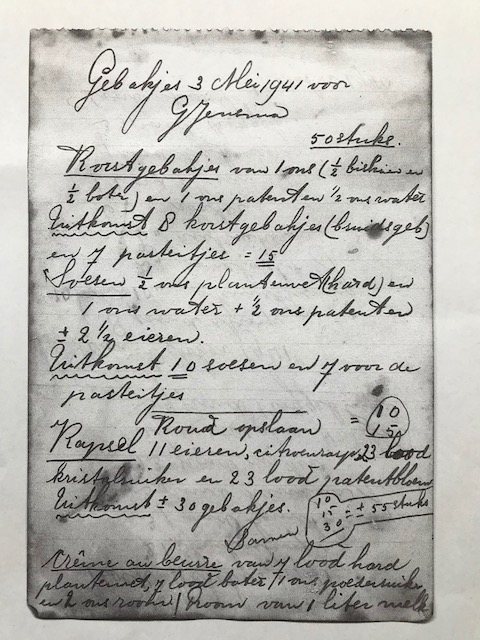 Gebakjes 3 Mei 1941 voor
G Jensma
50 stuks.
Korstgebakjes van 1 ons (½ biskien en
½ boter) en 1 ons patent en ½ ons water
Uitkomst 8 korstgebakjes (bruidsgeb)
en 7 pasteitjes = 15
Soesen ½ ons plantenvet (hard) en
1 ons water + ½ ons patent en
± 2 ½ eieren.
Uitkomst 10 soesen en 7 voor de
pasteitjes
Koud opslaan = 10
15
Kapsel 11 eieren, citroenrasp, 23 lood
kristalsuiker en 23 lood patentbloem
Uitkomst ± 30 gebakjes.
10
15 = ± 55 stuks
30
Samen
Crême au beurre van 7 lood hard
plantenvet, 7 lood boter, 1 ons poedersuiker
en 2 ons room / Room van 1 liter melk